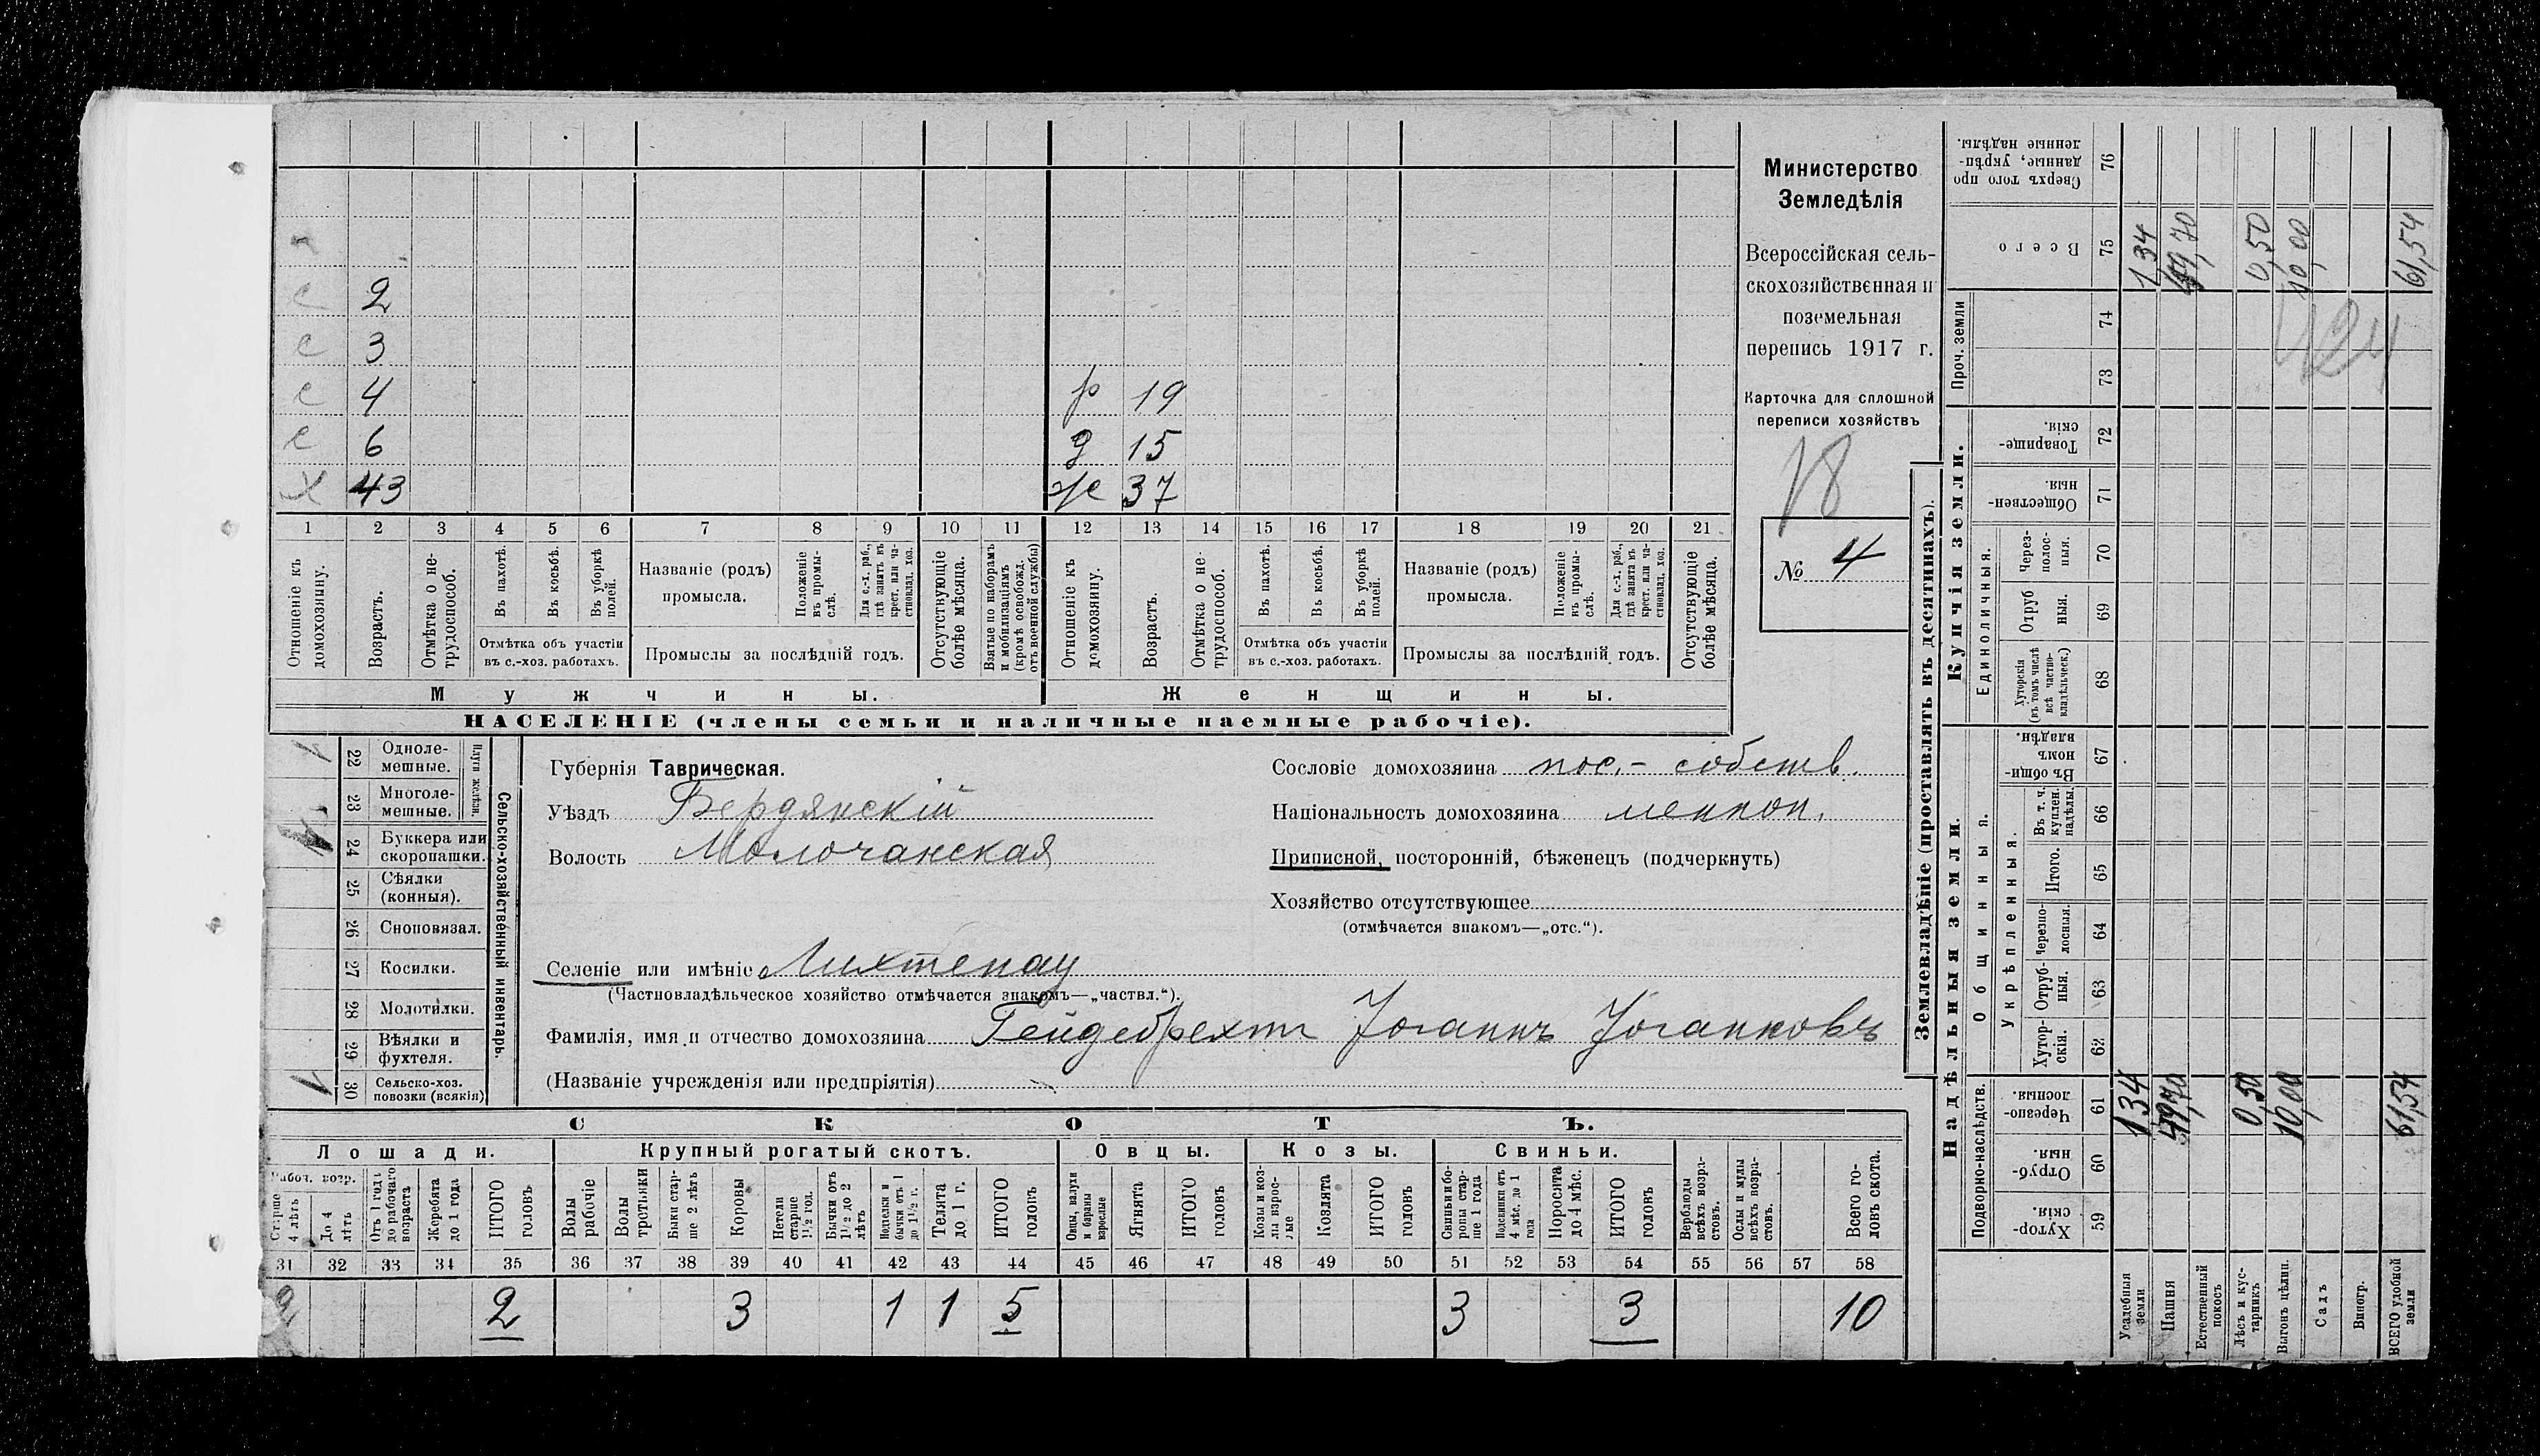 с 2
с 3
с 4 р 19
с 6 д 15
х 43 же 37
1 2 3 4 5 6 7 8 9 10 11 12 13 14 15 16 17 18 19 20 21
Отношеніе къ домохозяину.
Возрастъ.
Отмѣтка о не-
трудоспособ.
Въ пахотѣ.
Въ косьбѣ.
Въ уборкѣ
полей.
Отмѣтка объ участіи
въ с.-хоз. работахъ.
Названіе (родъ)
промысла.
Положеніе
въ промы-
слѣ.
Для с.-х. раб.,
гдѣ занятъ въ
крест. или ча-
стновлад. хоз.
Промыслы за послѣдній годъ.
Отсутствующіе
болѣе мѣсяца.
Взятые по наборамъ
и мобилизаціямъ
(кромѣ освобожд.
отъ военной службы)
Отношеніе къ
домохозяину.
Возрастъ.
Отмѣтка о не-
трудоспособ.
Въ пахотѣ.
Въ косьбѣ.
Въ уборкѣ
полей.
Отмѣтка объ участіи
въ с.-хоз. работахъ.
Названіе (родъ)
промысла.
Положеніе
въ промы-
слѣ.
Для с.-х. раб.,
гдѣ занята въ
крест. или ча-
стновлад. хоз.
Промыслы за послѣдній годъ.
Отсутствующіе
болѣе мѣсяца.
Мужчины.
Женщины.
НАСЕЛЕНІЕ (члены семьи и наличные наемные рабочіе).
Министерство
Земледѣлія
Всероссійская сель-
скохозяйственная и
поземельная
перепись 1917 г.
Карточка для сплошной
переписи хозяйствъ
18
№ 4
Сельско-хозяйственный инвентарь.
Плуги желѣзн.
22 Одноле-
мешные.
23 Многоле-
мешные.
24 Буккера или
скоропашки.
25 Сѣялки
(конныя).
26 Сноповязал.
27 Косилки.
28 Молотилки.
29 Вѣялки и
фухтеля.
30 Сельско-хоз.
повозки (всякія)
Губернія Таврическая.
Уѣздъ Бердянскій
Волость Молочанская
Селеніе или имѣніе Лихтенау
(Частновладѣльческое хозяйство отмѣчается знакомъ—„частвл.“).
Фамилія, имя и отчество домохозяина Гейдебрехтъ Іоганнъ Іоганновъ
(Названіе учрежденія или предпріятія)
Сословіе домохозяина пос.- собств.
Національность домохозяина меннон.
Приписной, посторонній, бѣженецъ (подчеркнуть)
Хозяйство отсутствующее
(отмѣчается знакомъ—„отс.“).
СКОТЪ.
Лошади.
Крупный рогатый скотъ.
Овцы.
Козы.
Свиньи.
Рабоч. возр.
Старше
4 лѣтъ
До 4
лѣтъ
Отъ 1 года
до рабочаго
возраста
Жеребята
до 1 года
ИТОГО
головъ
Волы
рабочіе
Волы
третьяки
Быки стар-
ше 2 лѣтъ
Коровы
Нетели
старше
1½ год.
Бычки отъ
1½ до 2
лѣтъ
Подтелки и
бычки отъ 1
до 1½ г.
Телята
до 1 г.
ИТОГО
головъ
Овцы, валухи
и бараны
взрослые
Ягнята
ИТОГО
головъ
Козы и коз-
лы взрос-
лые
Козлята
ИТОГО
головъ
Свиньи и бо-
ровы стар-
ше 1 года
Подсвинки отъ
4 мѣс. до 1
года
Поросята
до 4 мѣс.
ИТОГО
головъ
Верблюды
всѣхъ возра-
стовъ.
Ослы и мулы
всѣхъ возра-
стовъ.
Всего го-
ловъ скота.
31 32 33 34 35 36 37 38 39 40 41 42 43 44 45 46 47 48 49 50 51 52 53 54 55 56 57 58
2 2 3 1 1 5 3 3 10
Землевладѣніе (проставлять въ десятинахъ).
Надѣльныя земли.
Купчія земли.
Проч. земли
Подворно-наслѣдств.
Общинныя.
Укрѣпленныя.
Единоличныя.
Хутор-
скія. 59
Отруб-
ныя. 60
Черезпо-
лосныя. 61
Хутор-
скія. 62
Отруб-
ныя. 63
Черезпо-
лосныя. 64
Итого. 65
Въ т. ч.
куплен.
надѣлы. 66
Въ общин-
номъ
владѣн. 67
Хуторскія
(въ томъ числѣ
всѣ частно-
владѣльческ.) 68
Отруб
ныя. 69
Через-
полос-
ныя. 70
Обществен-
ныя. 71
Товарище-
скія. 72
73
74
Всего 75
Сверхъ того про
данные, укрѣп-
ленные надѣлы. 76
Усадебныя
земли 1,34 1,34
Пашня 49,70 49,70
Естественный
покосъ
Лѣсъ и кус-
тарникъ 0,50 0,50
Выгонъ цѣлин. 10,00 10,00
Садъ
Виногр.
ВСЕГО удобной
земли 61,54 61,54
124